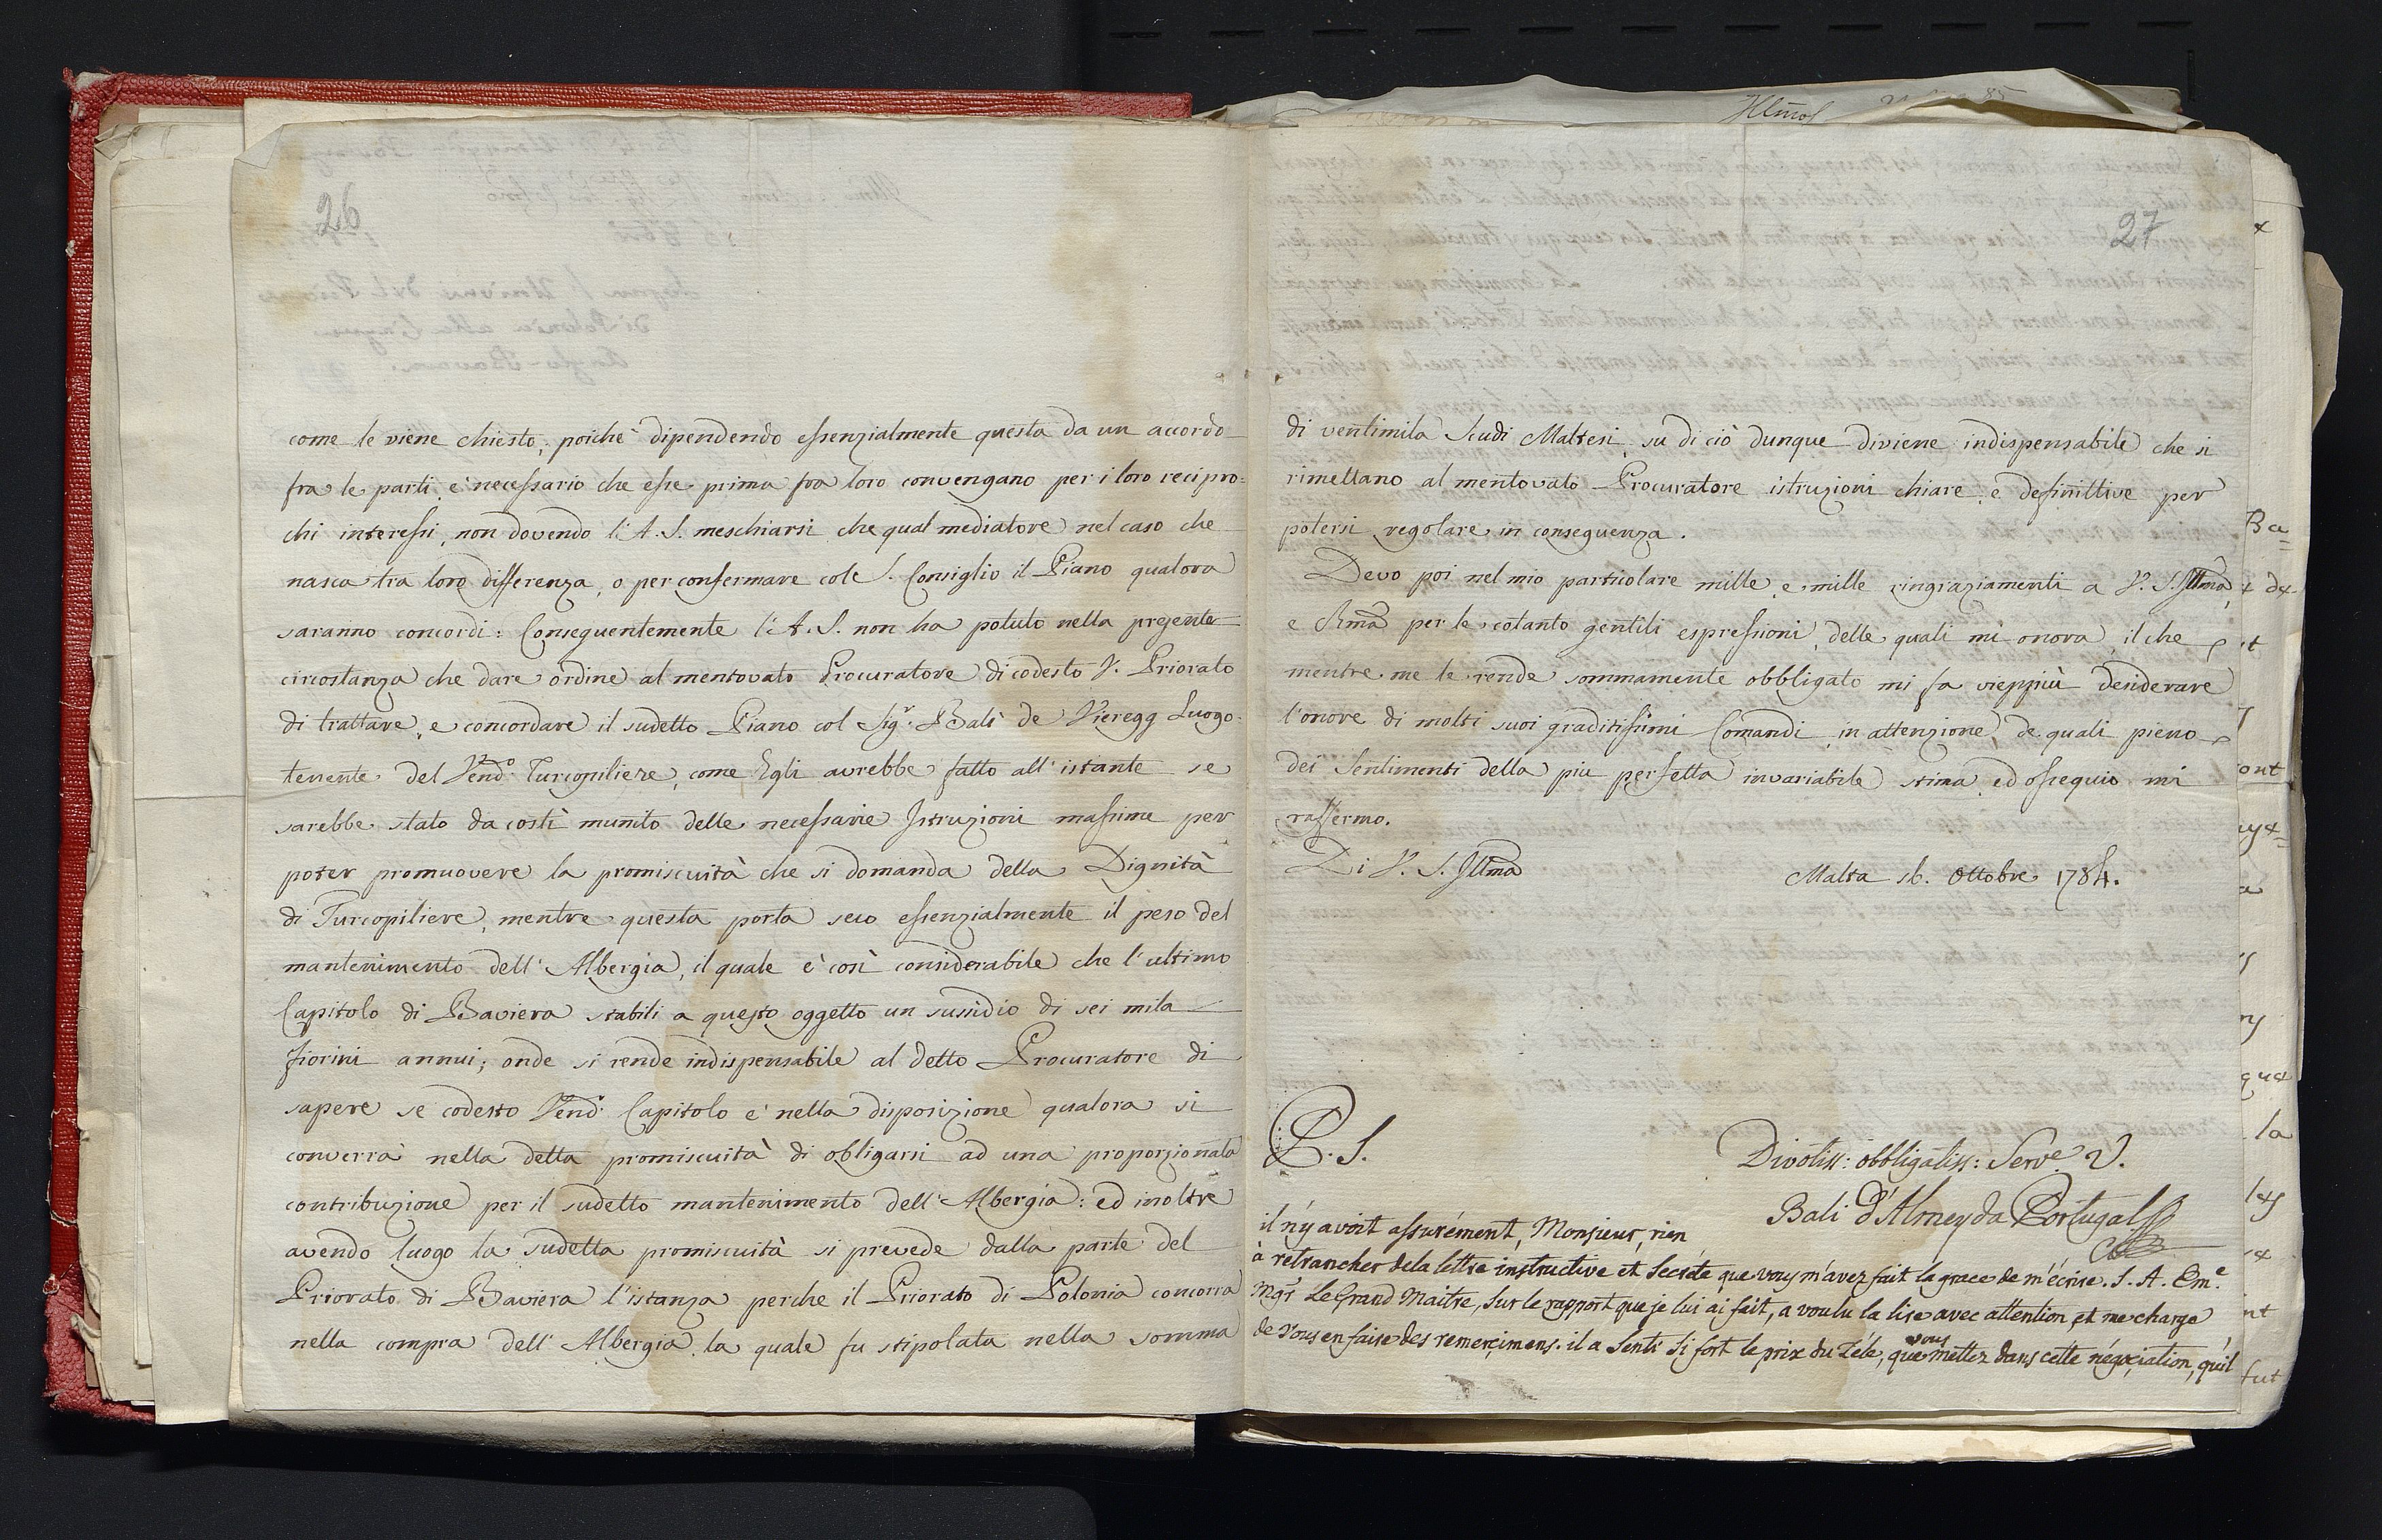 26
come le viene chiesto; poichè dipendendo essenzialmente questa da un accordo
fra le parti, e' necessario che esse prima fra loro convengano per i loro recipro=
chi interessi, non dovendo l'A. S. meschiarsi che qual mediatore nel caso che
nasca tra loro differenza, o per confermare col S. Consiglio il Piano qualora
saranno concordi: Conseguentemente l'A. S. non ha potuto nella presente
circostanza che dare ordine al mentovato Procuratore di codesto V. Priorato
di trattare, e concordare il sudetto Piano col Sigr. Balì de Vieregg Luogo=
tenente del Vendo. Turcopiliere, come Egli avrebbe fatto all' istante se
sarebbe stato da costì munito delle necessarie Istruzioni massime per
poter promuovere la promiscuità che si domanda della Dignità
di Turcopiliere, mentre questa porta seco essenzialmente il peso del
mantenimento dell' Albergia, il quale e' così considerabile che l'ultimo
Capitolo di Baviera stabilì a questo oggetto un sussidio di sei mila
fiorini annui; onde si rende indispensabile al detto Procuratore di
sapere se codesto Vendo. Capitolo e' nella disposizione qualora si
converrà nella detta promiscuità di obligarsi ad una proporzionata
contribuzione per il sudetto mantenimento dell' Albergia: ed inoltre
avendo luogo la sudetta promiscuità si prevede dalla parte del
Priorato di Baviera l'istanza perche il Priorato di Polonia concorra
nella compra dell' Albergia, la quale fu stipolata nella somma
27
di ventimila Scudi Maltesi, su di ciò dunque diviene indispensabile che si
rimettano al mentovato Procuratore istruzioni chiare, e definittive per
potersi regolare in conseguenza.
Devo poi nel mio particolare mille, e mille ringraziamenti a V. S. Illma,
e Rma per le cotanto gentili espressioni, delle quali mi onora, il che
mentre me le rende sommamente obbligato mi fa vieppiù desiderare
l'onore di molti suoi graditissimi Comandi, in attenzione de quali pieno
dei Sentimenti della più perfetta invariabile stima, ed ossequio mi
raffermo.
Di V. S. Illma
Malta 16. Ottobre 1784.
P. S.
Divotiss: obbligatiss: Serve. V.
Bali d'Almeyda Portugal
il n'y avoit assurément, Monsieur, rien
à retrancher dela lettre instructive et secréte que vous m'avez fait la grace de m'écrire. S. A. Eme.
Mgr Le Grand Maitre, sur le rapport que je lui ai fait, a voulu la lire avec attention, et me charge
de vous en faire des remerçimens. il a senti si fort le prix du Zéle, que vous mettez dans cette négociation, qu'il